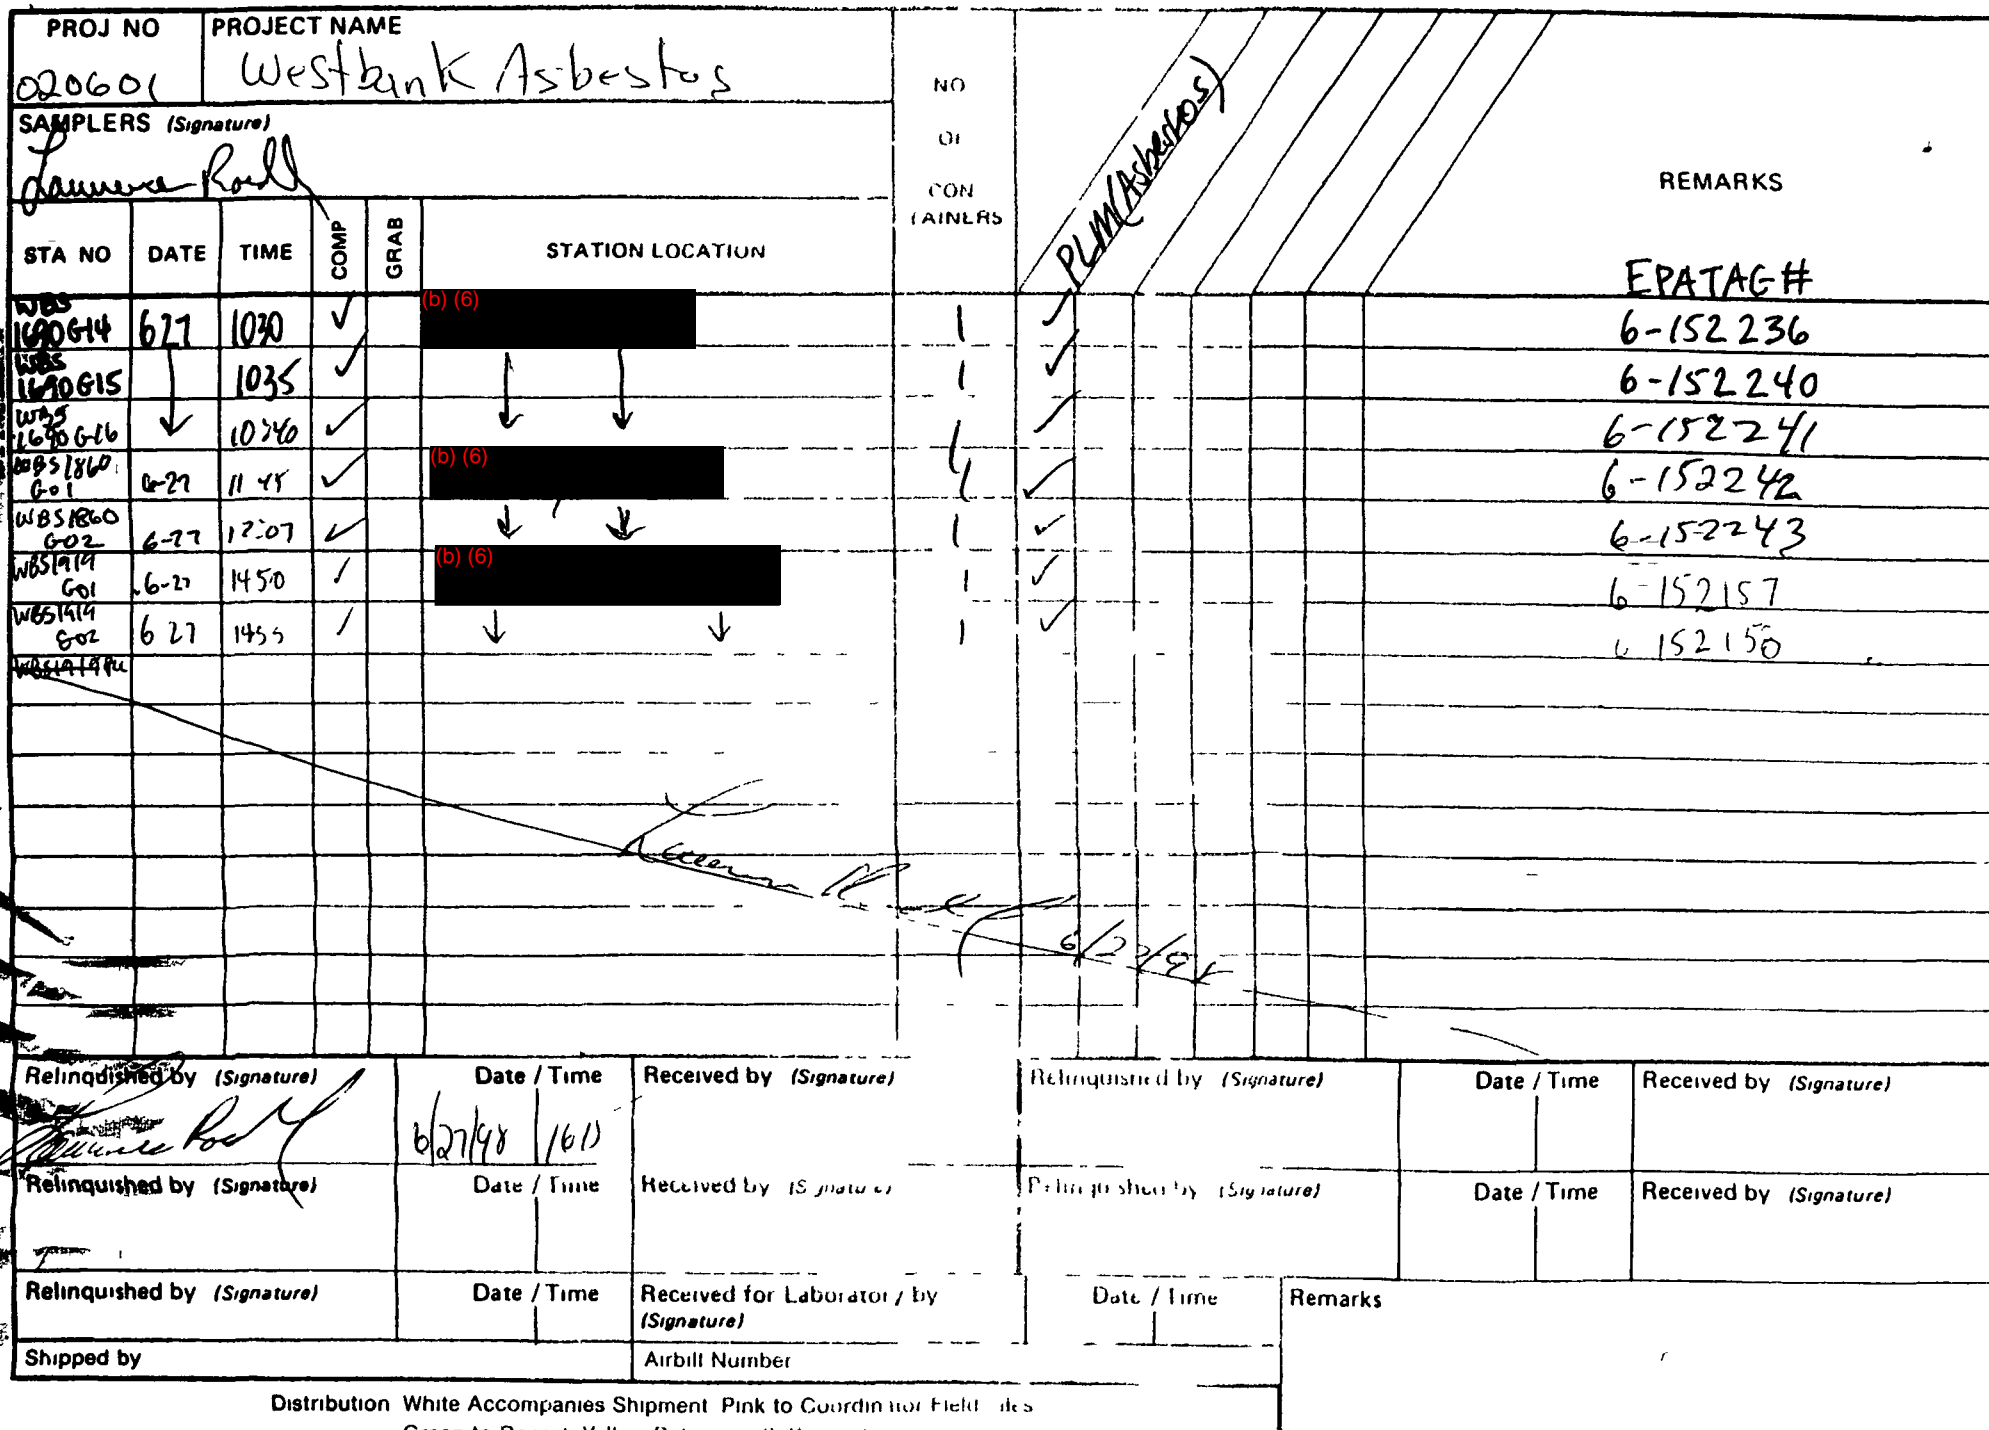 PROJ NO PROJECT NAME
020601 Westbank Asbestos
SAMPLERS (Signature)
NO OF CONTAINERS
PLM (Asbestos)
REMARKS
STA NO DATE TIME COMP GRAB STATION LOCATION
EPATAG#
WBS 1690G14 627 1030 ✓ (b) (6) 1 ✓ 6-152236
WBS 1690G15 1035 ✓ 1 ✓ 6-152240
WBS 1690G16 ✓ 1 ✓ 6-152241
WBS1860 G01 6-27 11 45 ✓ (b) (6) 1 ✓ 6-152242
WBS1860 G02 6-27 12:07 ✓ 1 ✓ 6-152243
WBS1919 G01 6-27 1450 ✓ (b) (6) 1 ✓ 6-152157
WBS1919 G02 6 27 1455 ✓ 1 ✓ 6 152150
Relinquished by (Signature) Date / Time Received by (Signature) Relinquished by (Signature) Date / Time Received by (Signature)
6/27/98
Relinquished by (Signature) Date / Time Received by (Signature) Relinquished by (Signature) Date / Time Received by (Signature)
Relinquished by (Signature) Date / Time Received for Laboratory by (Signature) Date / Time Remarks
Shipped by Airbill Number
Distribution White Accompanies Shipment Pink to Coordinator Field